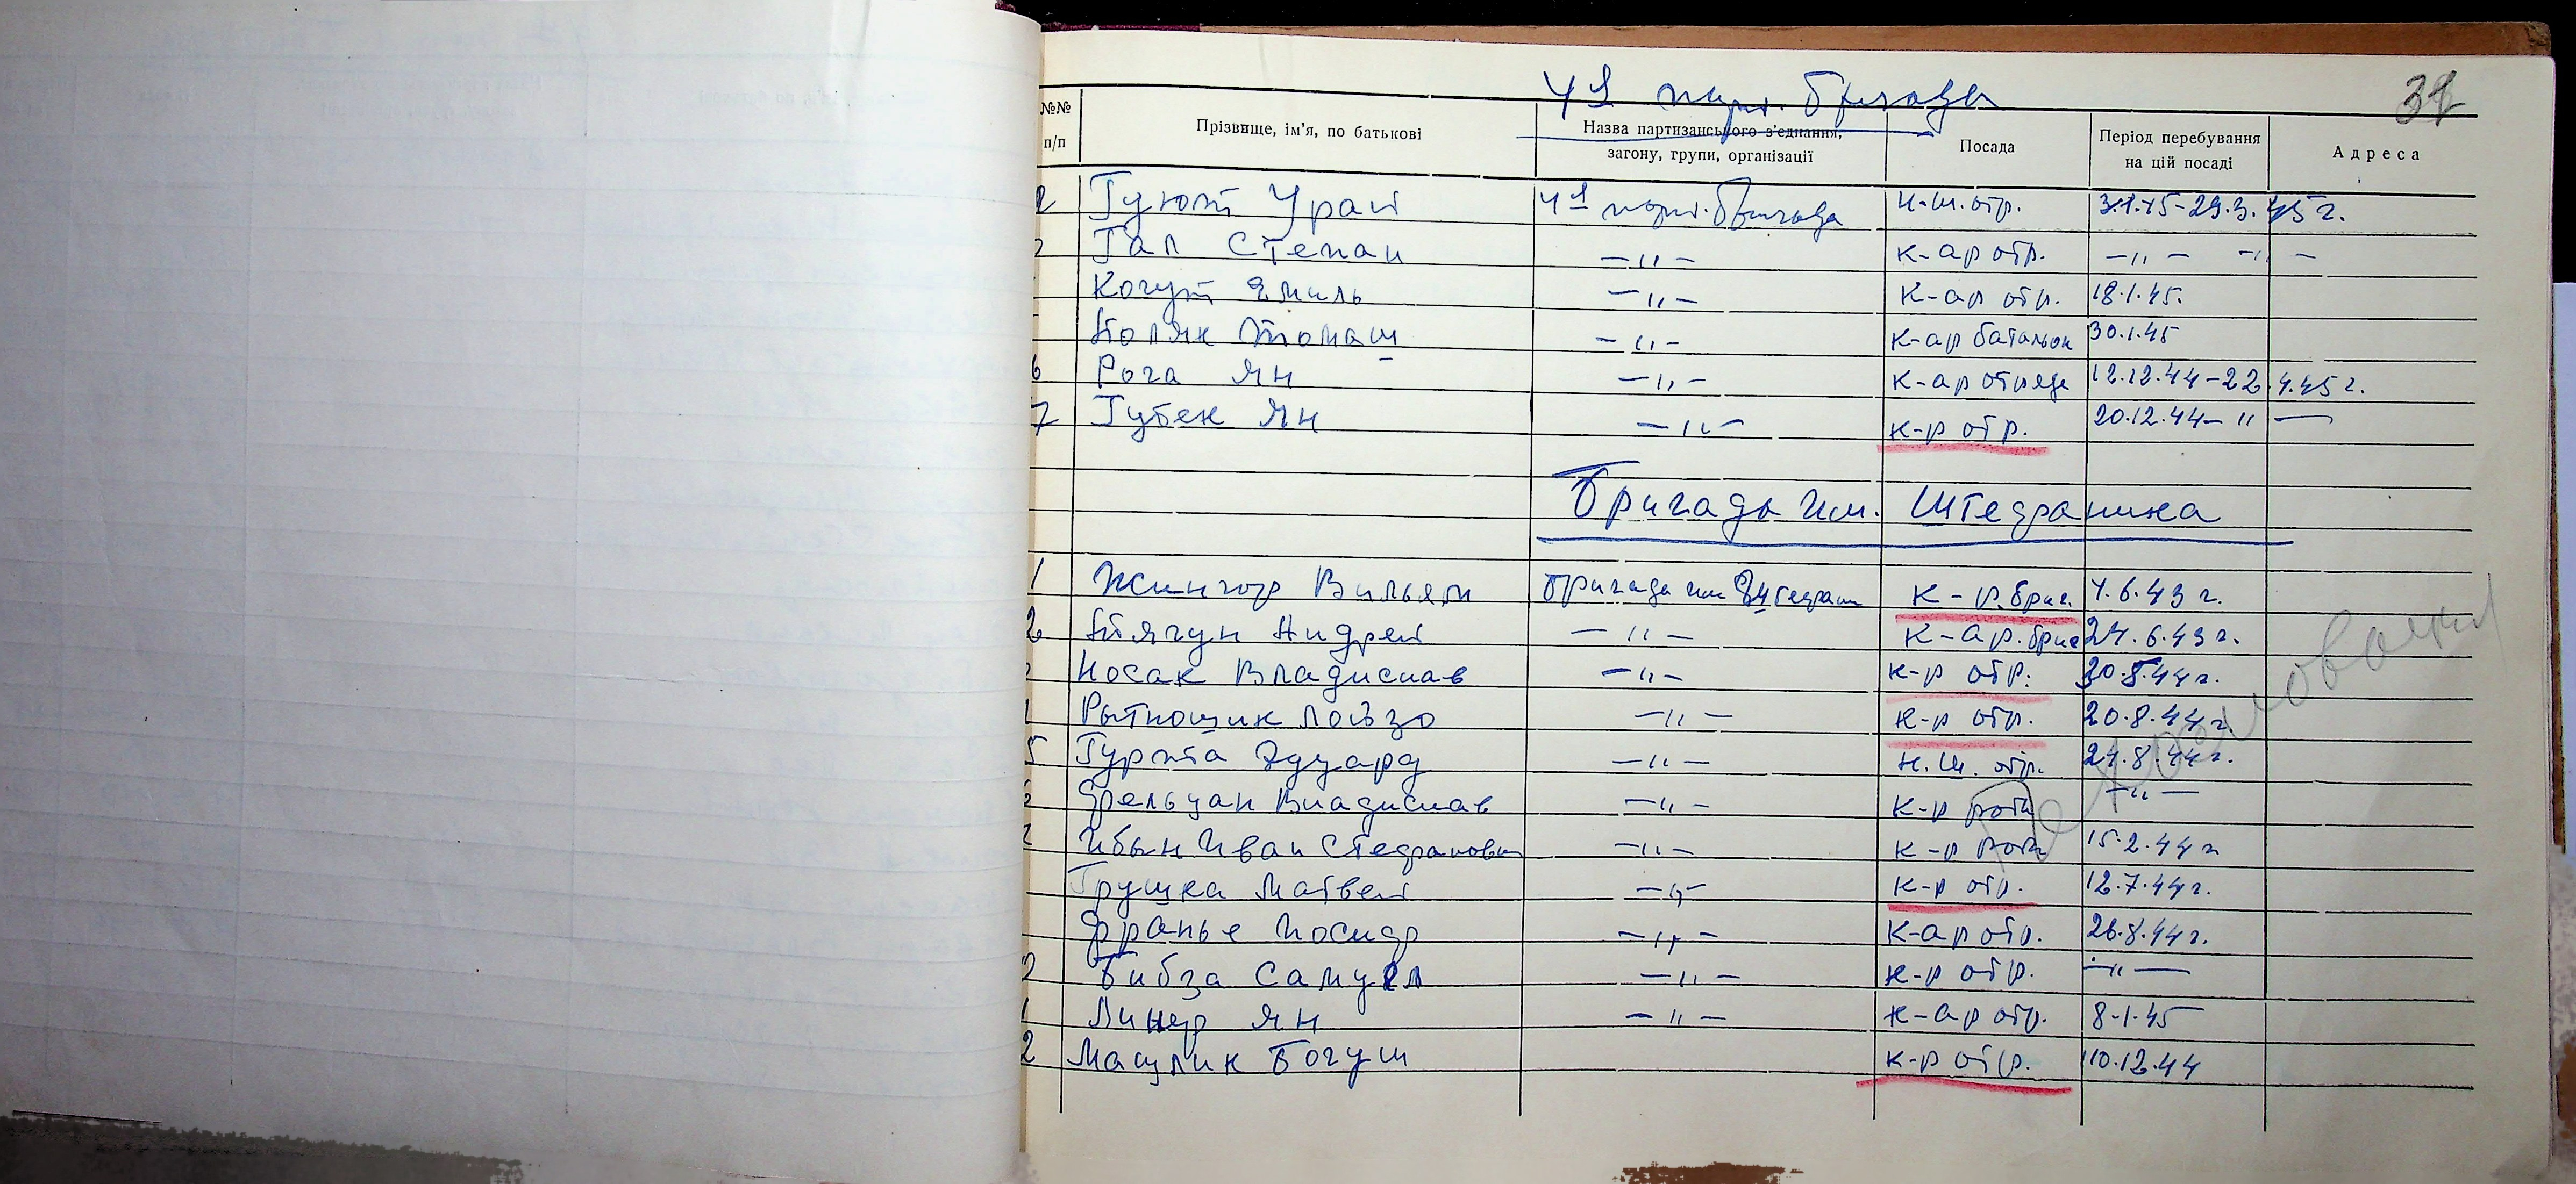 4я парт. бригада
31
№№ п/п Прізвище, ім'я, по батькові Назва партизанського з'єднання, загону, групи, організації Посада Період перебування на цій посаді Адреса
Гуют Урай 4я парт. бригада н.ш. отр. 3.1.45-29.3.45 г.
Гал Степан —"— к-ар отр. —"— —"—
Когут Эмиль —"— к-ар отр. 18.1.45.
Поляк Томаш —"— к-ар батальон 30.1.45
6 Рога Ян —"— к-ар отряда 12.12.44-22.4.45 г.
7 Губек Ян —"— к-р отр. 20.12.44- "—
Бригада им. Штефаника
1 Жингор Вильям Бригада им Штефан к-р. бриг. 4.6.43 г.
2 Пягун Андрей —"— к-ар. бриг 24.6.43 г.
Носак Владислав —"— к-р отр. 30.8.44 г.
Рытнощик Лойзо —"— к-р отр. 20.8.44 г.
5 Гурта Эдуард —"— н.ш. отр. 24.8.44 г.
Фрельцан Владислав —"— к-р роты —"—
Ибын Иван Стефанович —"— к-р роты 15.2.44 г
Грушка Матвей —"— к-р отр. 12.7.44 г.
Франье Иосиф —"— к-ар отр. 26.8.44 г.
Бибза Самуел —"— к-р отр. —"—
1 Линер Ян —"— к-ар отр. 8-1.45
2 Мащлик Богуш к-р отр. 10.12.44